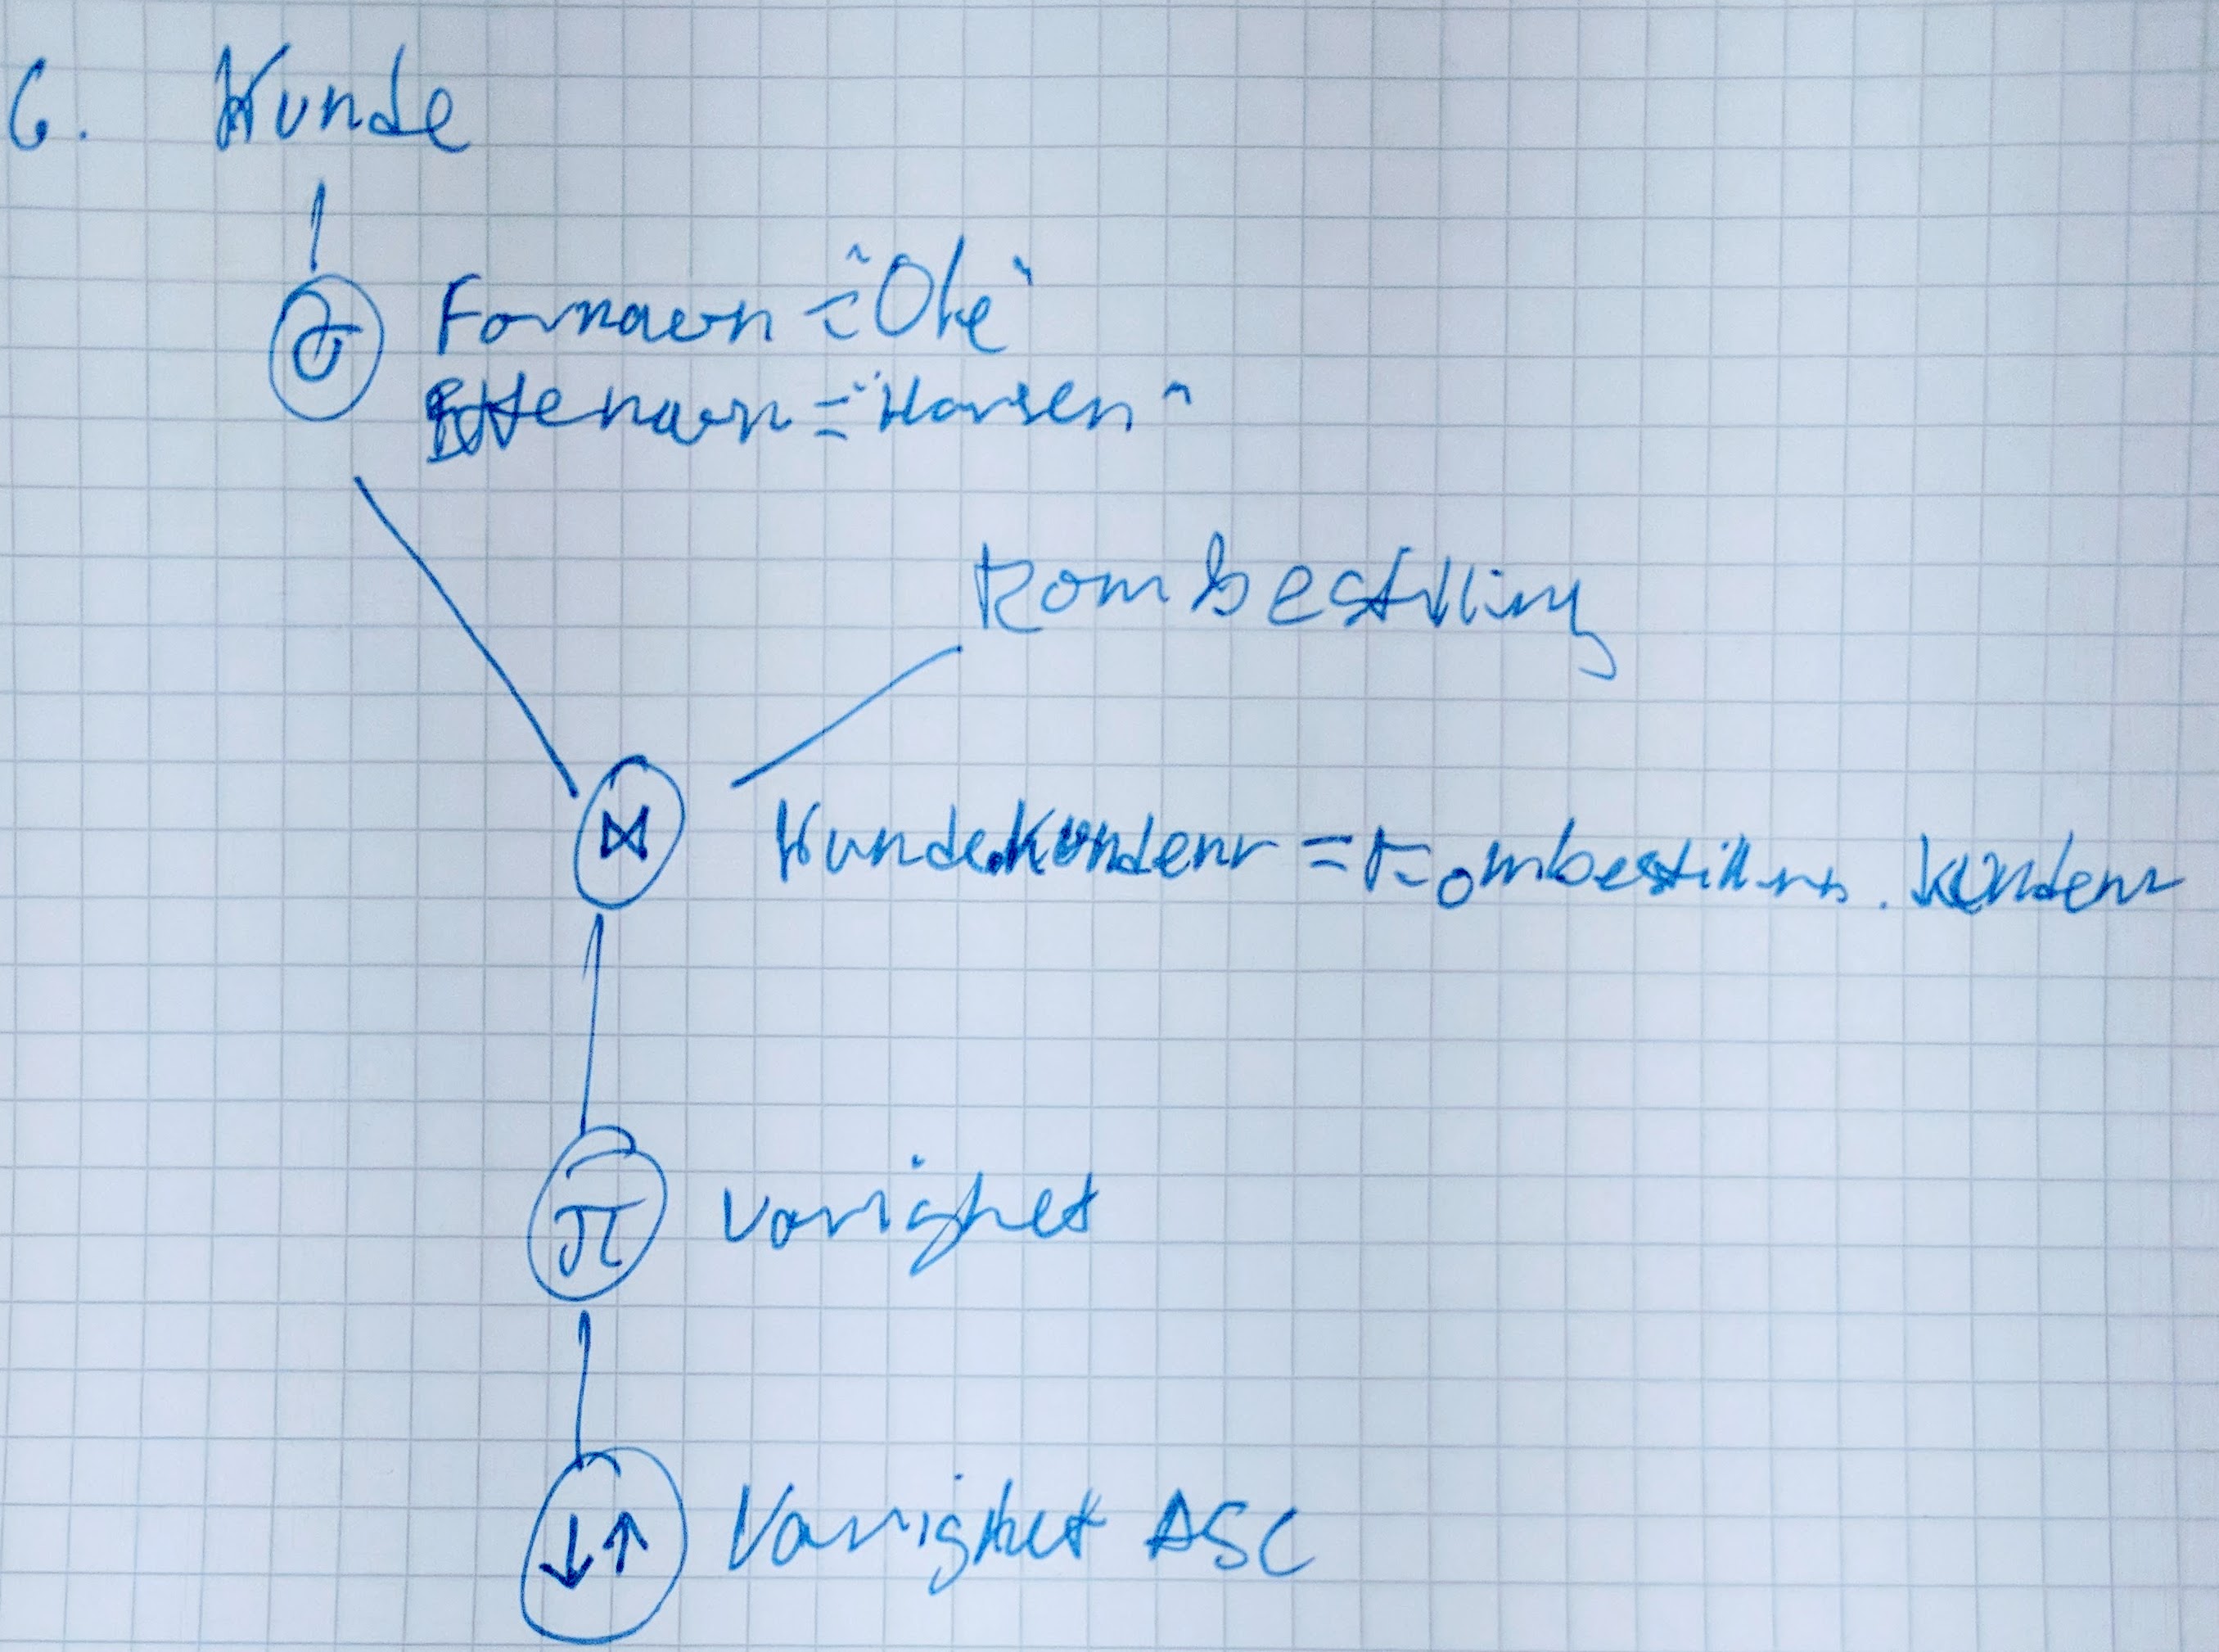 6. Kunde
σ Fornavn = "Ole"
Etternavn = "Hansen"
Rombestilling
⋈ Kunde.Kundenr = Rombestilling.kundenr
π Varighet
↓↑ Varighet ASC